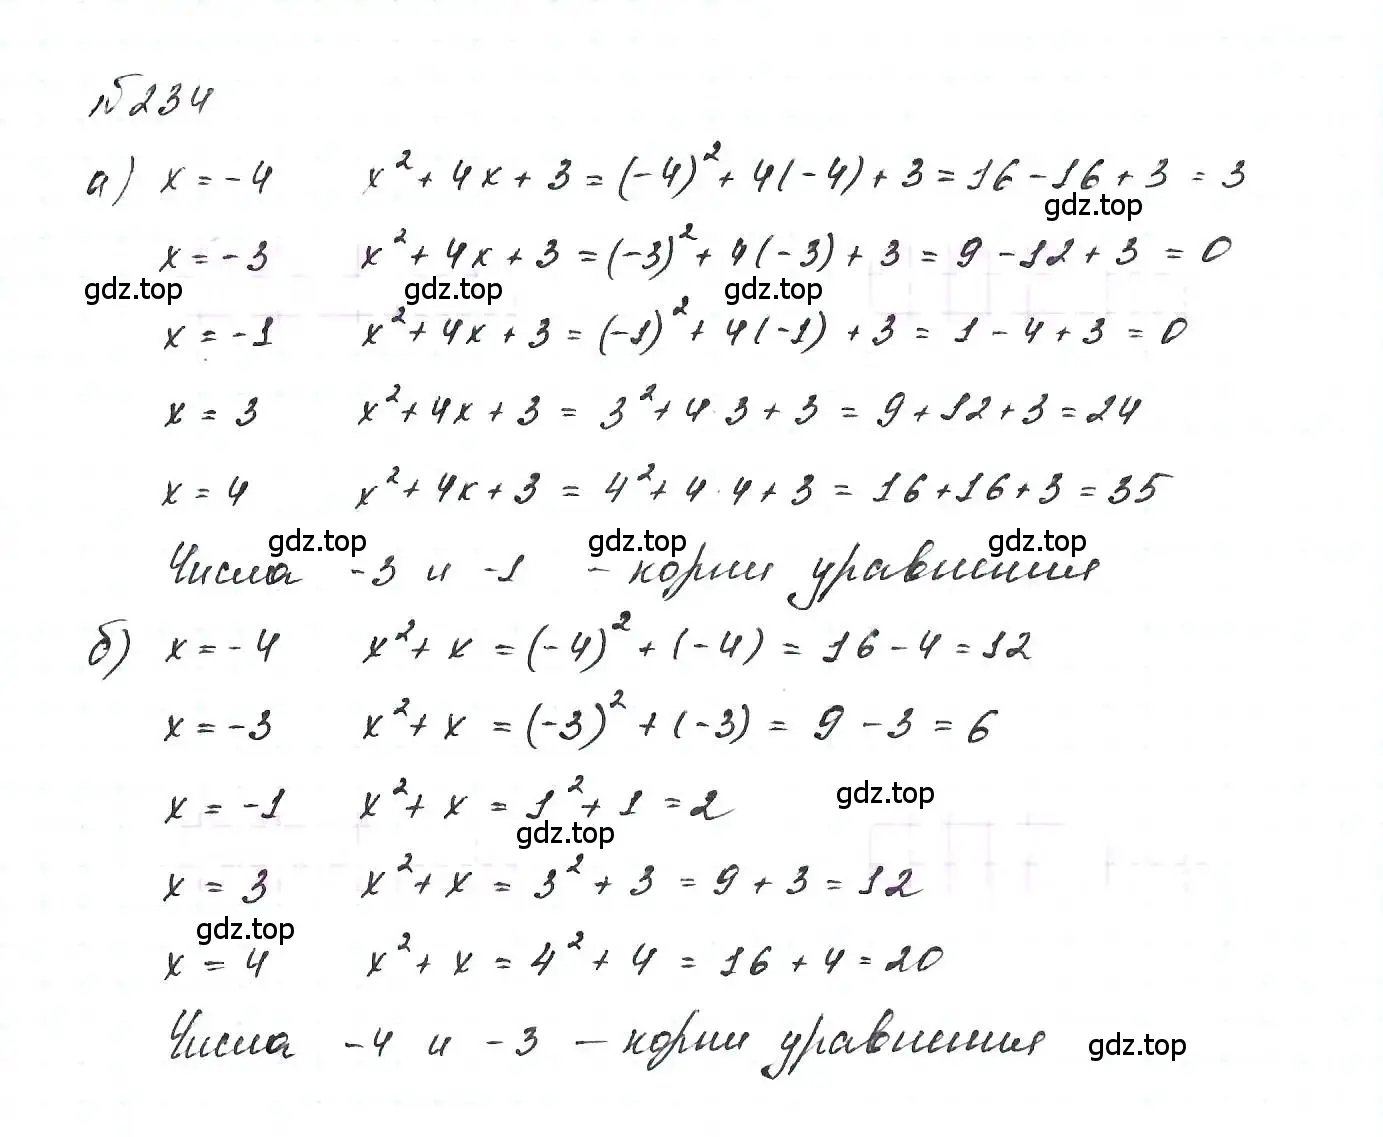 №234
а) x = -4 x² + 4x + 3 = (-4)² + 4(-4) + 3 = 16 - 16 + 3 = 3
gdz.top
x = -3 x² + 4x + 3 = (-3)² + 4(-3) + 3 = 9 - 12 + 3 = 0
gdz.top gdz.top gdz.top
x = -1 x² + 4x + 3 = (-1)² + 4(-1) + 3 = 1 - 4 + 3 = 0
x = 3 x² + 4x + 3 = 3² + 4·3 + 3 = 9 + 12 + 3 = 24
x = 4 x² + 4x + 3 = 4² + 4·4 + 3 = 16 + 16 + 3 = 35
gdz.top gdz.top gdz.top
Числа -3 и -1 - корни уравнения
б) x = -4 x² + x = (-4)² + (-4) = 16 - 4 = 12
x = -3 x² + x = (-3)² + (-3) = 9 - 3 = 6
x = -1 x² + x = 1² + 1 = 2 gdz.top
gdz.top
x = 3 x² + x = 3² + 3 = 9 + 3 = 12
gdz.top
x = 4 x² + x = 4² + 4 = 16 + 4 = 20
Числа -4 и -3 - корни уравнения gdz.top